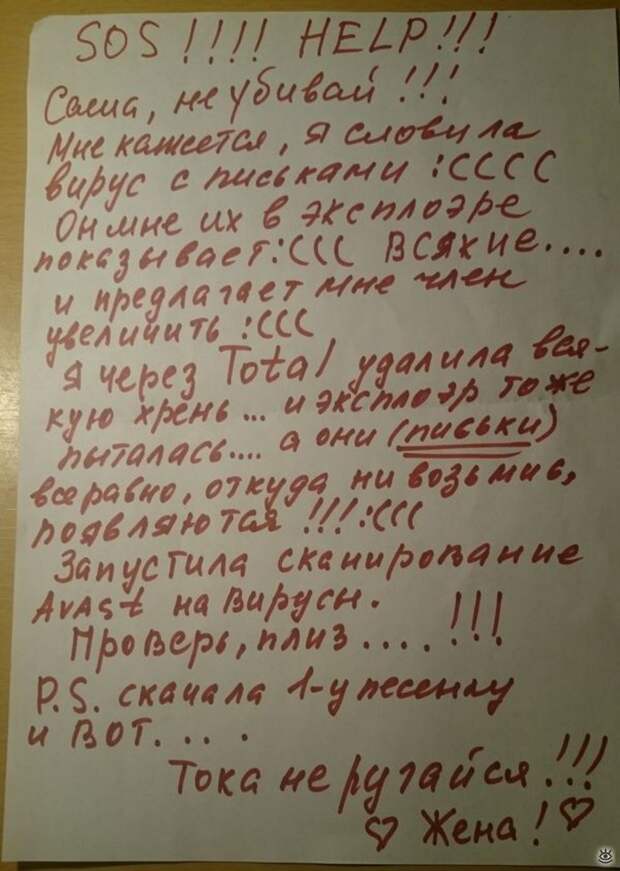 SOS !!!! HELP!!!
Саша, не убивай !!!
Мне кажется, я словила
вирус с письками :((((
Он мне их в эксплоэре
показывает:((( всякие....
и предлагает мне член
увеличить :(((
Я через Total удалила вся-
кую хрень... и эксплоэр тоже
пыталась.... а они (письки)
всеравно, откуда ни возьмис,
появляются !!!:(((
Запустила сканирование
Avast на вирусы.
Проверь, плиз .... !!!
P.S. скачала 1-у песенку
и ВОТ. . . .
Тока не ругайся !!!
♡ Жена! ♡